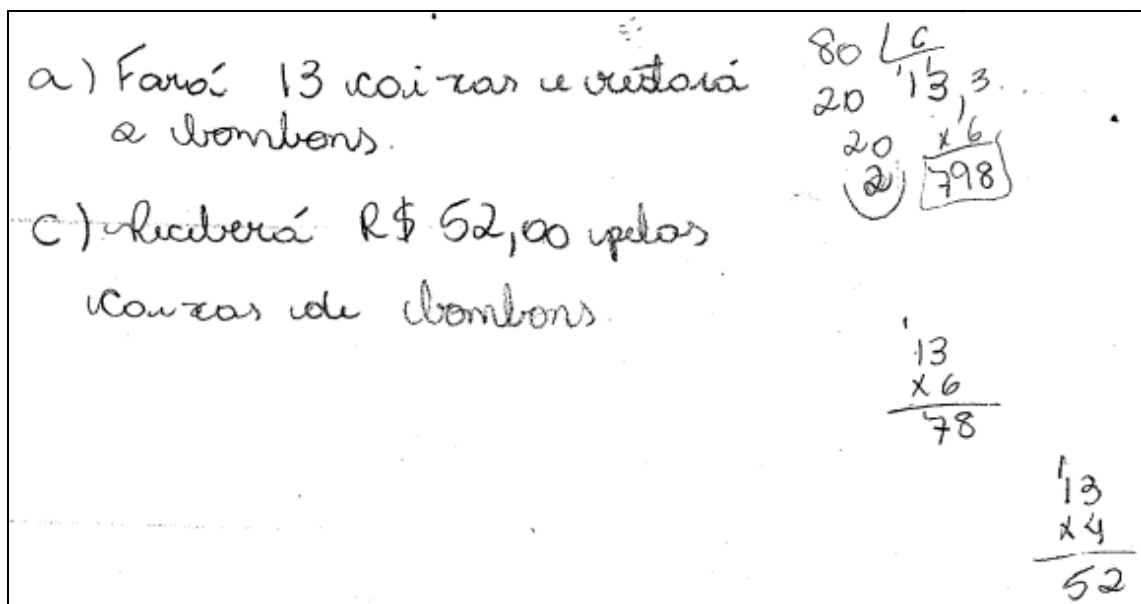 a) Fará 13 caixas e restará
2 bombons.
C) Receberá R$ 52,00 pelas
caixas de bombons
80 6
20 13,3...
20 x 6
2 798
13
x 6
78
13
x 4
52